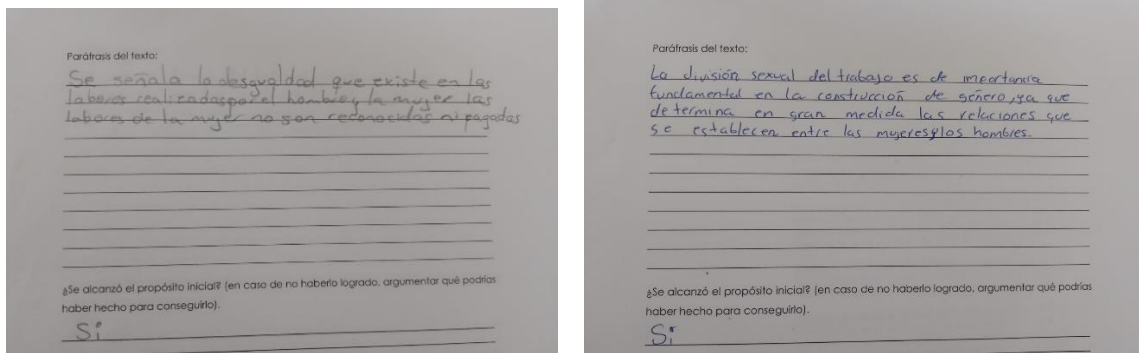 Paráfrasis del texto:
Se señala la desgualdad que existe en las
labores realizadas por el hombre y la muger las
labores de la muger no son reconocidas ni pagadas
¿Se alcanzó el propósito inicial? (en caso de no haberlo logrado, argumentar qué podrías
haber hecho para conseguirlo).
Si
Paráfrasis del texto:
La división sexual del trabajo es de importancia
fundamental en la construcción de género, ya que
determina en gran medida las relaciones que
se establecen entre las mujeres y los hombres.
¿Se alcanzó el propósito inicial? (en caso de no haberlo logrado, argumentar qué podrías
haber hecho para conseguirlo).
Si